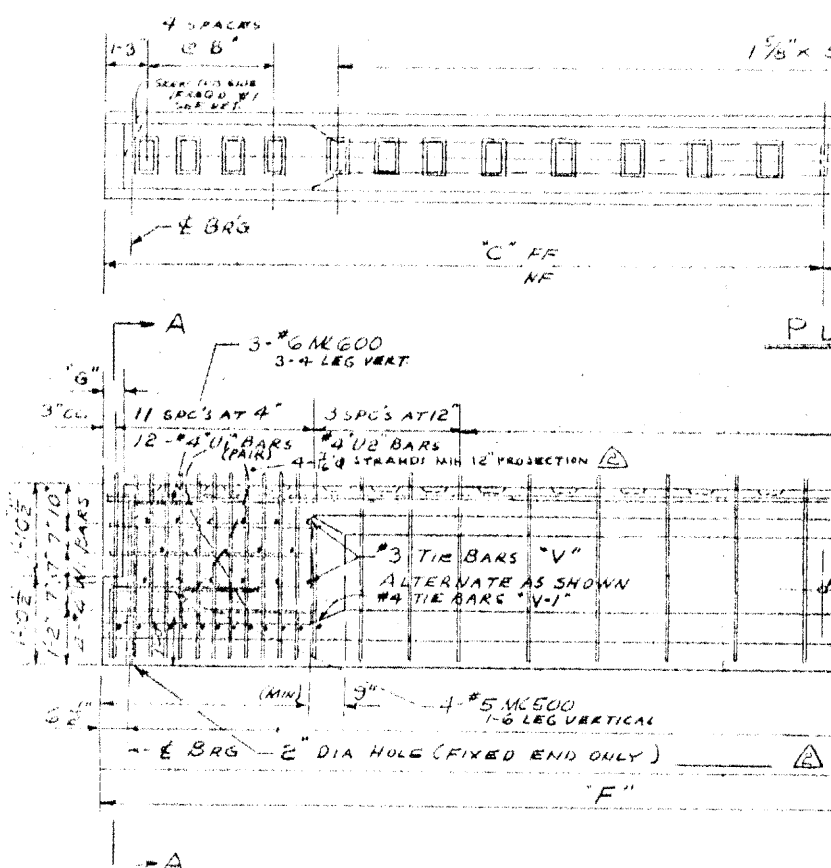 4 SPACES
@ 8"
1-3"
1 5/8" x 5
℄ BR'G
"C" FF
NF
A
PL
3-#6 MK600
3-4 LEG VERT.
"G"
3"
11 SPC'S AT 4"
3 SPC'S AT 12"
12-#4 "U1" BARS
(PAIR)
#4 "U2" BARS
STRANDS MIN 12" PROJECTION 2
1'-10 1/2"
1'-0 1/2"
1'-2" 7" 7" 7" 10"
#4 W. BARS
#3 TIE BARS "V"
ALTERNATE AS SHOWN
#4 TIE BARS "V-1"
(MIN)
9"
4-#5 MK500
1-6 LEG VERTICAL
6 1/2"
℄ BRG
2" DIA HOLE (FIXED END ONLY)
2
"F"
A